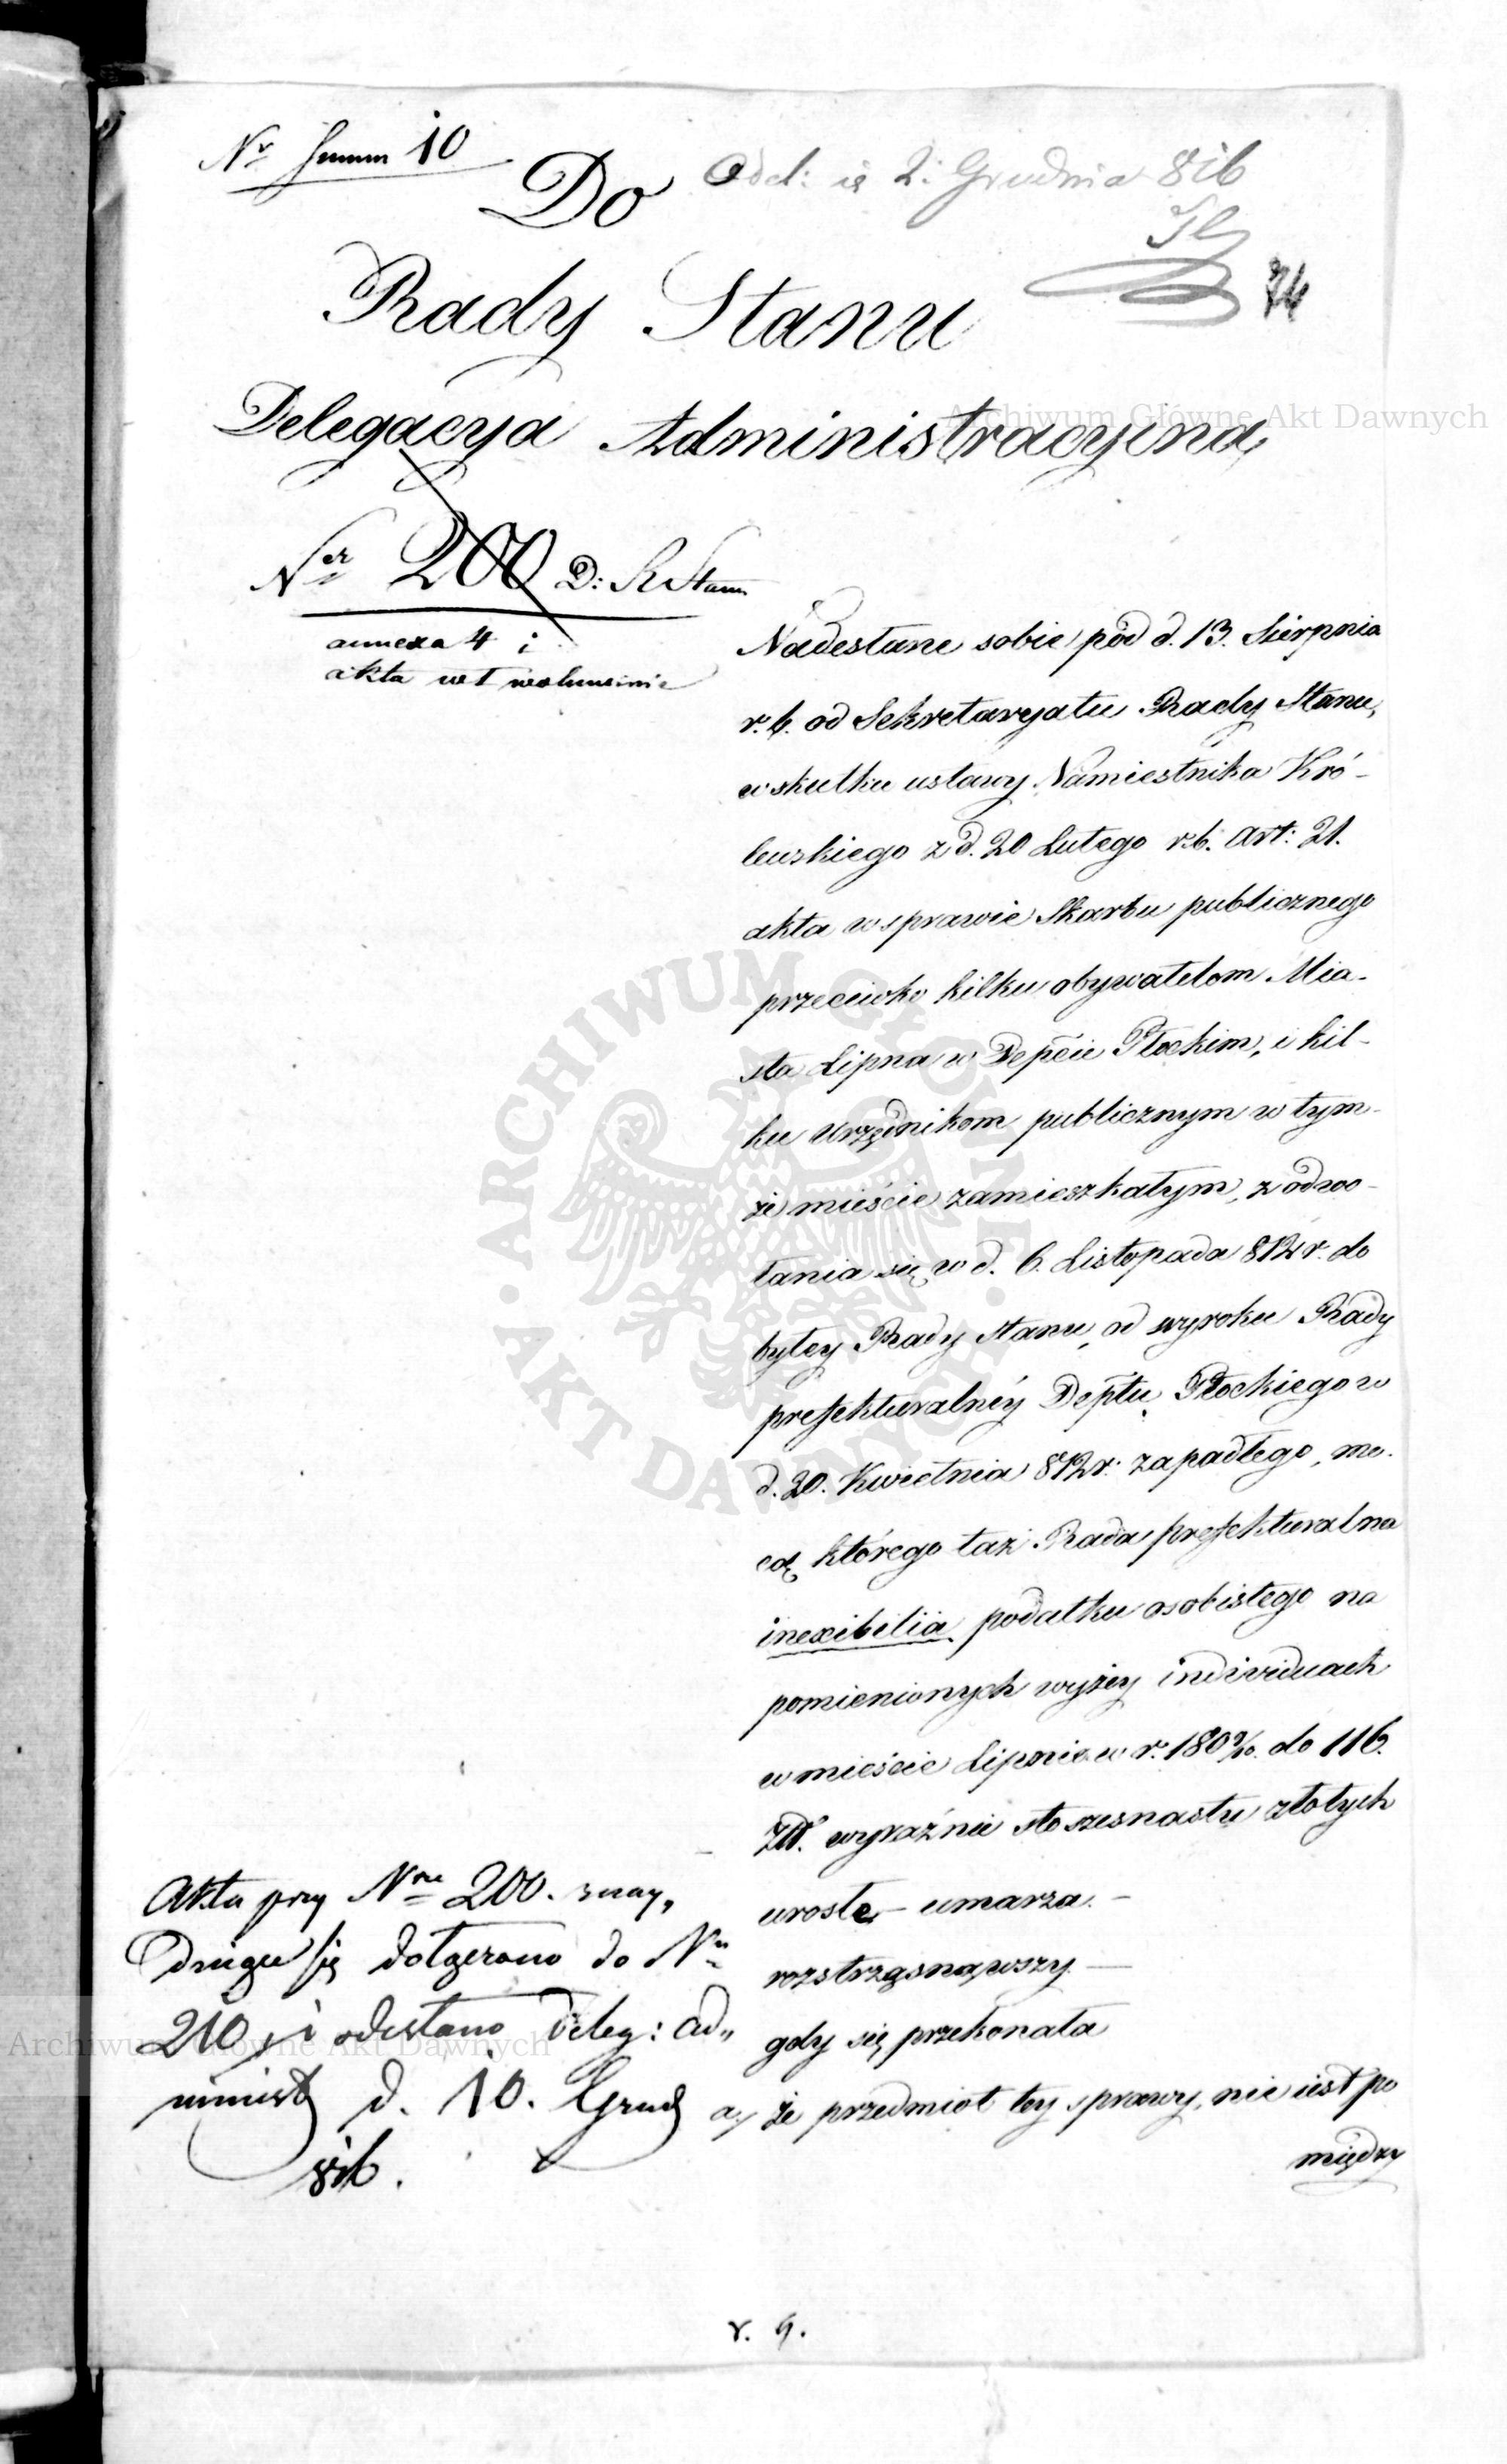 Nr 10
Do
Odd: 2: Grudnia 816
74
Rady Stanu
Delegacya Administracyina
Ner 200 D: R Stanu
annexa 4 i
akta
Nadesłane sobie pod d. 13. Sierpnia
r. b. od Sekretaryatu Rady Stanu,
w skutku ustawy Namiestnika Kró-
lewskiego z d. 20 Lutego r.b. art: 21.
akta w sprawie Skarbu publicznego
przeciwko kilku obywatelom Mia-
sta Lipna w Depcie Płockim, i kil-
ku Urzędnikom publicznym w tym-
że mieście zamieszkałym, z odwo-
łania się w d. 6. Listopada 812 r. do
byłey Rady Stanu, od wyroku Rady
prefekturalnéy Deptu Płockiego w
d. 30. Kwietnia 812 r. zapadłego, mo-
cą którego taż Rada prefekturalna
inexibilia podatku osobistego na
pomienionych wyżey individuach
w mieście Lipnie w r. 1809/10. do 116.
Złł. wyraźnie sto szesnastu złotych
urosłe umarza. —
rozstrząsnąwszy —
gdy się przekonała
a/ że przedmiot tey sprawy, nie iest po
między
Akta przy Nrze 200. znay„
duiące się dołączono do Nru
210 i odesłano Deleg: ad„
minist d. 10. Grud
816.
r. 9.
Archiwum Główne Akt Dawnych
ARCHIWUM GŁÓWNE
AKT DAWNYCH
Archiwum Główne Akt Dawnych